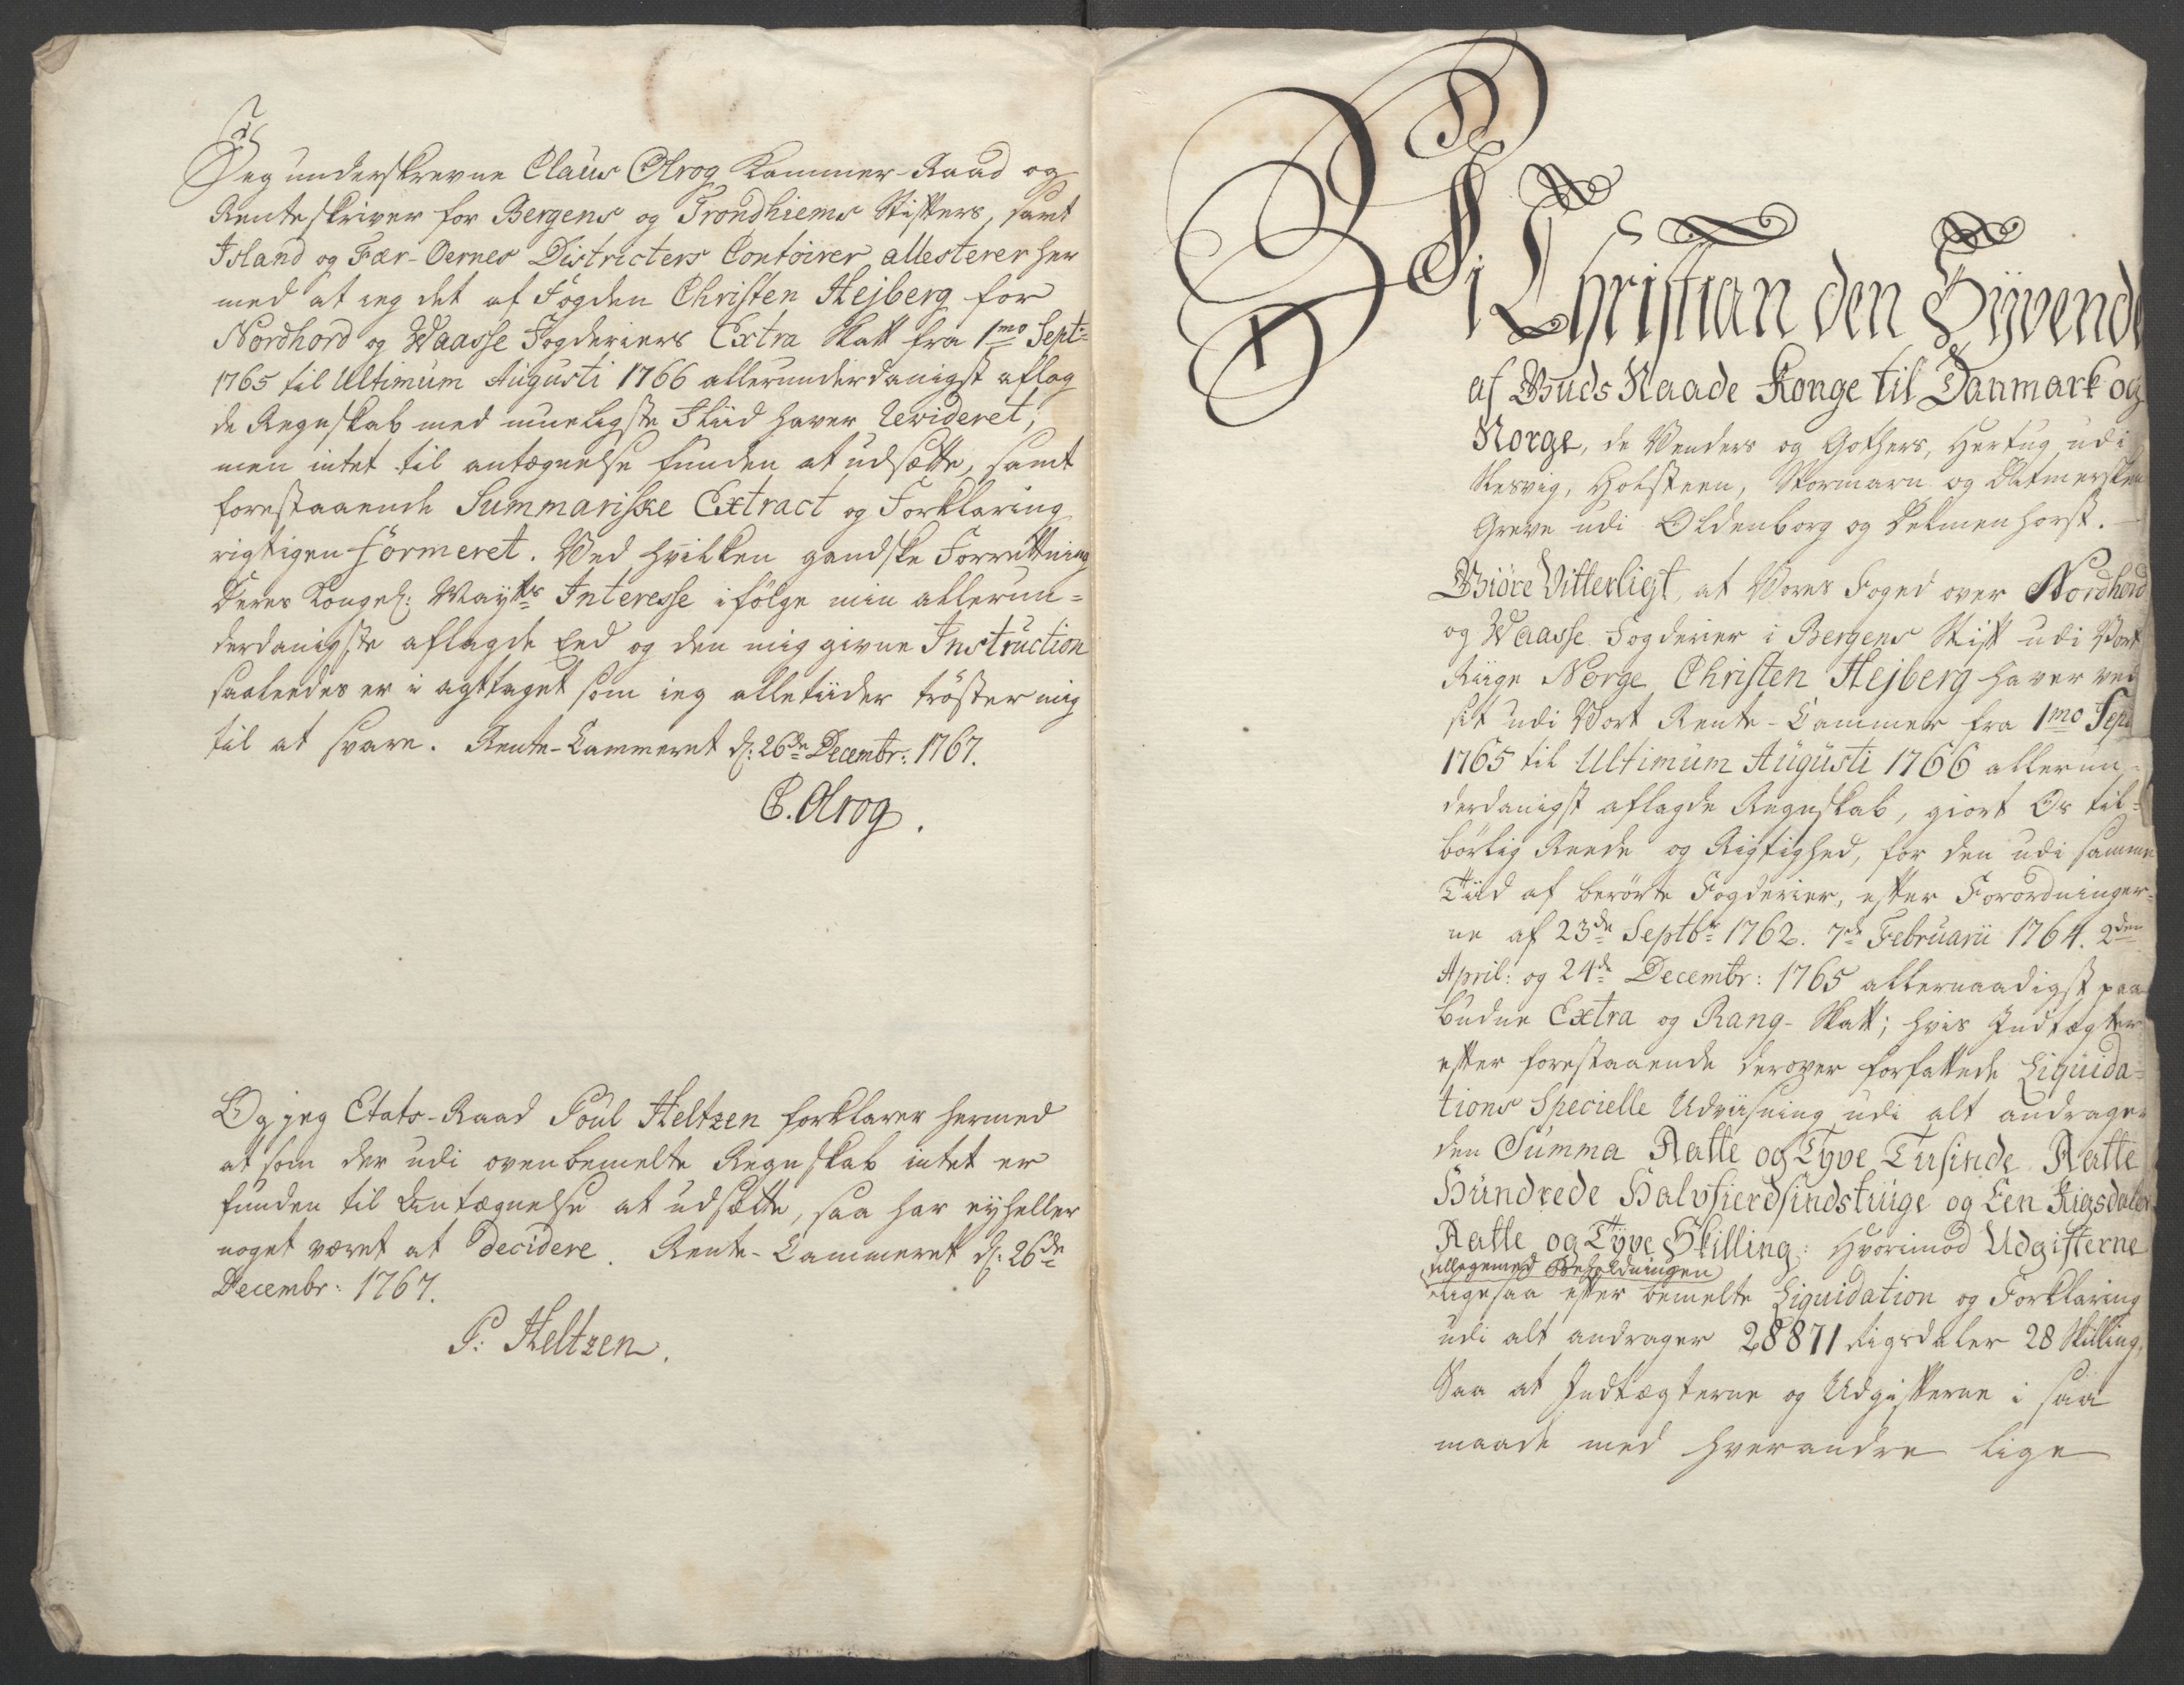 Jeg underskrevne Claus Olrog Kammer-Raad og
Renteskriver for Bergens og Trondhiems Stifters, samt
Island og Fær-Oernes Districters Contoirer attesterer her
med at ieg det af Fogden Christen Hejberg for
Nordhord og Waasse Fogderiers Extra Skatt fra 1mo Sept:
1765 til Ultimum Augusti 1766 allerunderdanigst aflag
de Regnskab med mueligste Fliid haver Revideret,
men intet til antægnelse funden at udsætte, samt
forestaaende Summariske Extract og Forklaring
rigtigen formeret. Ved hvilken gandske Forretning
Deres Kongel: Mayts Interesse ifølge min allerun=
derdanigste aflagde Eed og den mig givne Instruction
saaleedes er i agttaget som ieg alletiider trøster mig
til at svare. Rente-Cammeret d: 26de Decembr: 1767.
C. Olrog.
Og jeg Etats-Raad Poul Heltzen forklarer hermed
at som der udi ovenbemelte Regnskab intet er
funden til Antægnelse at udsætte, saa har ey heller
noget været at decidere. Rente-Cammeret d: 26de
Decembr: 1767.
P: Heltzen.
Vi Christian den Syvende
af Guds Naade Konge til Danmark og
Norge, de Venders og Gothers, Hertug udi
Slesvig, Holsteen, Stormarn og Ditmersken
Greve udi Oldenborg og Delmenhorst.
Giöre Vitterligt, at Vores Foged over Nordhord
og Waasse Fogderier i Bergens Stift udi Vort
Riige Norge, Christen Hejberg haver ved
sit udi Vort Rente-Cammer fra 1mo Sept
1765 til Ultimum Augusti 1766 allerun=
derdanigst aflagde Regnskab, giort Os til=
børlig Reede og Rigtighed, for den udi samme
Tiid af berørte Fogderier, efter Forordninger=
ne af 23de Septbr 1762. 7de Februarii 1764. 2den
April: og 24de Decembr: 1765 allernaadigst paa
budne Extra og Rang-Skatt; hvis Indtægter
efter forestaaende derover forfattede Liquida=
tions Specielle Udviisning udi alt andrager
den Summa Aatte og Tyve Tusinde Aatte
Hundrede Halvfierdsindstiuge og Een Rigsdaler
Aatte og Tyve Skilling: Hvorimod Udgifterne
tilligemed Beholdningen
ligesaa efter bemelte Liquidation og Forklaring
udi alt andrager 28871 Rigsdaler 28 Skilling,
Saa at Indtægterne og Udgifterne i saa
maade med hverandre lige